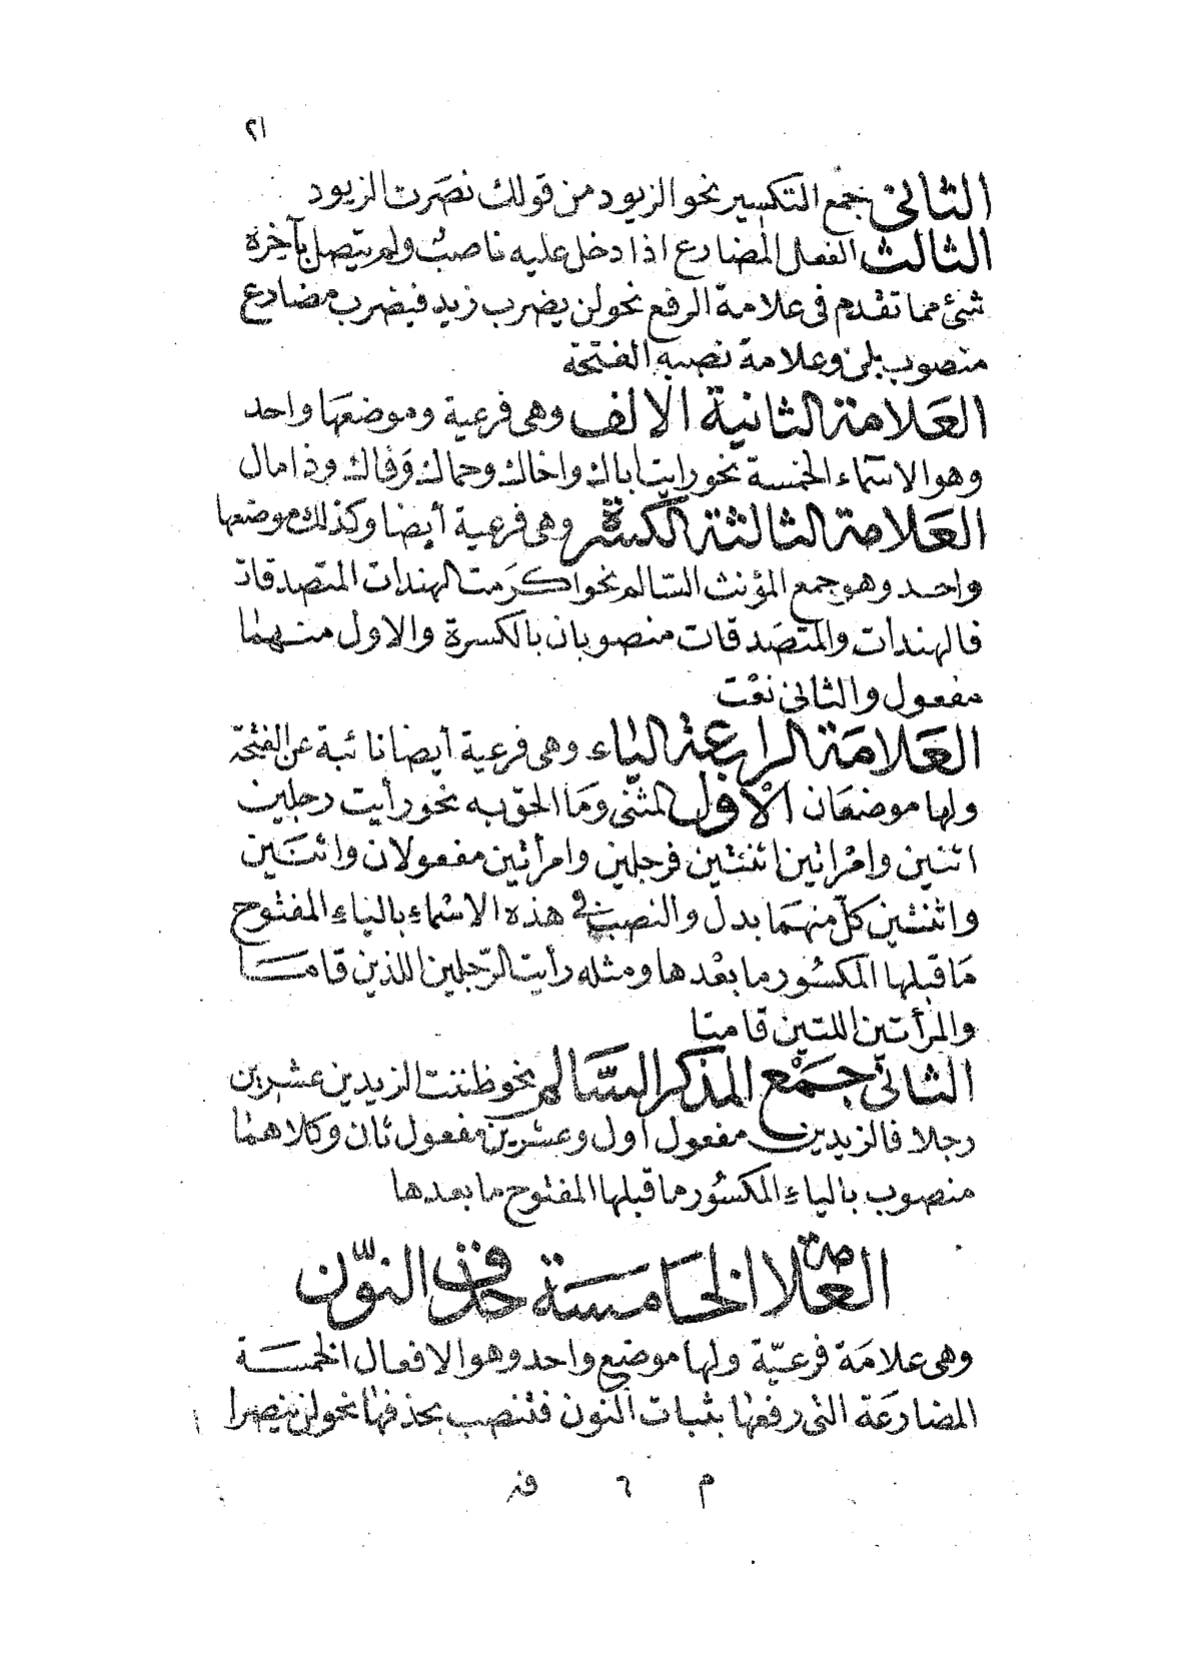 ٢١
الثانى جمع التكسير نحو الزيود من قولك نصرت الزيود
الثالث الفعل المضارع اذا دخل عليه ناصب ولم يتصل بآخره
شئ مما تقدم فى علامة الرفع نحو لن يضرب زيد فيضرب مضارع
منصوب بلن وعلامة نصبه الفتحة
العَلامة الثانية الالف وهى فرعية وموضعها واحد
وهو الاسماء الخمسة نحو رايت اباك واخاك وحماك وفاك وذا مال
العَلامة الثالثة الكسرة وهى فرعية أيضا وكذلك موضعها
واحد وهو جمع المؤنث السالم نحو اكرَمت الهندات المتصدقات
فالهندات والمتصَدقات منصوبان بالكسرة والاول منهما
مفعول والثانى نعْت
العَلامَة الرابعة الياء وهى فرعية أيضا نائبة عن الفتحة
ولها موضعَان الاول المثنى وَما الحق به نحو رأيت رجلين
اثنين وامْراتين اثنتين فرجلين وامرأتين مفعولان واثنَين
واثنتين كلّ منهمَا بدل والنصب فى هذه الاسْماء بالياء المفتوح
مَا قبلها المكسُور ما بعْدها ومثله رأيت الرّجلين اللذين قامَا
والمرأتين اللتين قامتا
الثانى جمْع المذكر السّالم نحو ظننت الزيدين عشرين
رجلا فالزيدين مفعول أول وعشرين مفعول ثان وكلاهما
منصوب بالياء المكسُور ما قبلها المفتوح ما بعدها
العلامة الخامسَة حذف النّون
وهى علامَة فرعيّة ولها موضع واحد وهو الافعال الخمسَة
المضارعَة التى رفعها بثبات النون فتنصب بحذفها نحو لن ينصرا
م ٦ فر